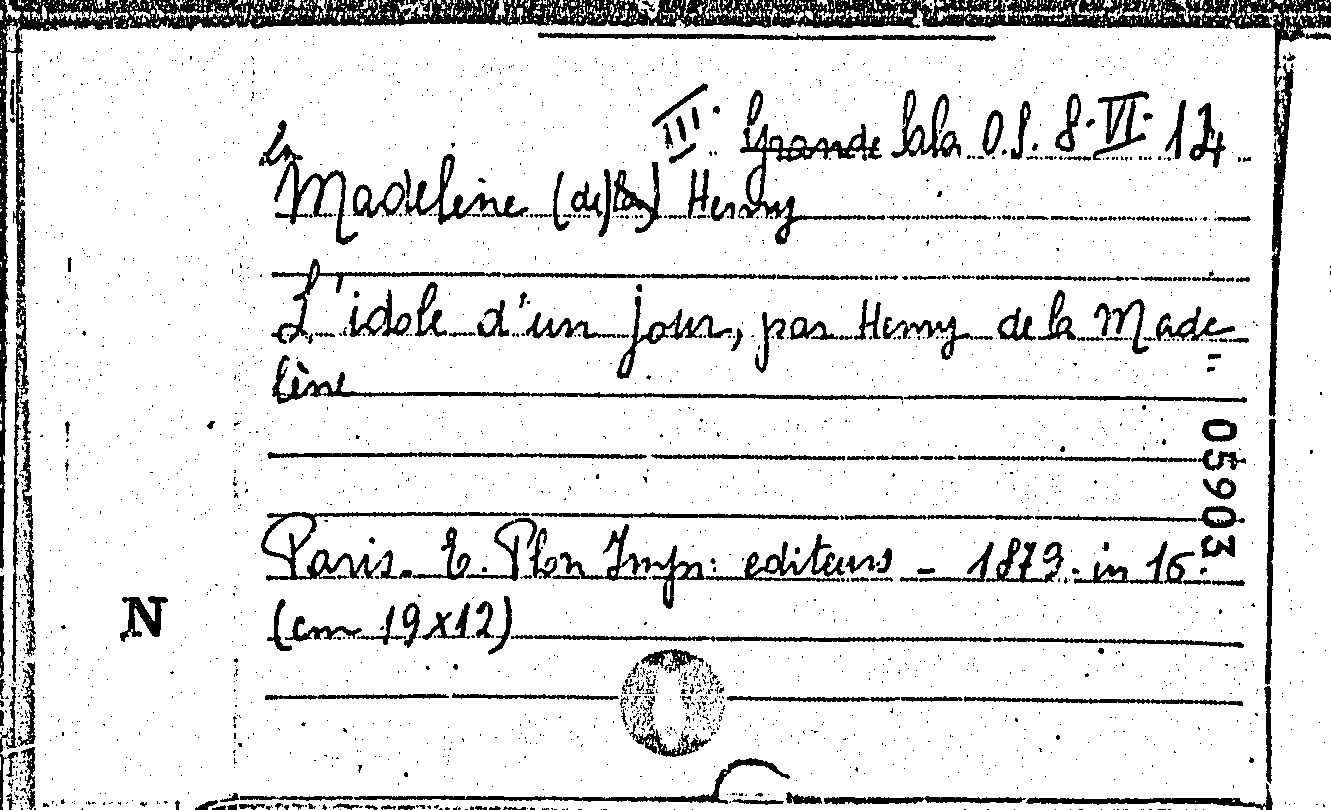 III. Grande Sala O.S. 8.VI.12
la
Madelène (de) (la) Henry
L'idole d'un jour, par Henry de la Made=
lène
05903
Paris. E. Plon Imp: editeurs - 1873. in 16.
(cm 19x12)
N